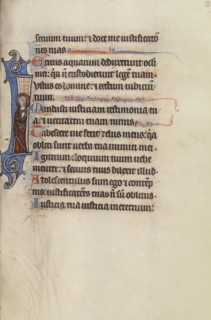 seruum tuum: et doce me iustificatio
nes tuas.
Exitus aquarum deduxerunt ocu
li mei: quia non custodierunt legem tuam.
Iustus es domine: et rectum iudicium
tuum.
testimonia
tua: et ueritatem tuam nimis.
Tabescere me fecit zelus meus: quia
obliti sunt uerba tua inimici mei.
Ignitum eloquium tuum uehe
menter: et seruus tuus dilexit illud.
Adolescentulus sum ego et contemp
tus: iustificationes tuas non sum oblitus.
Iusticia tua iusticia in eternum: